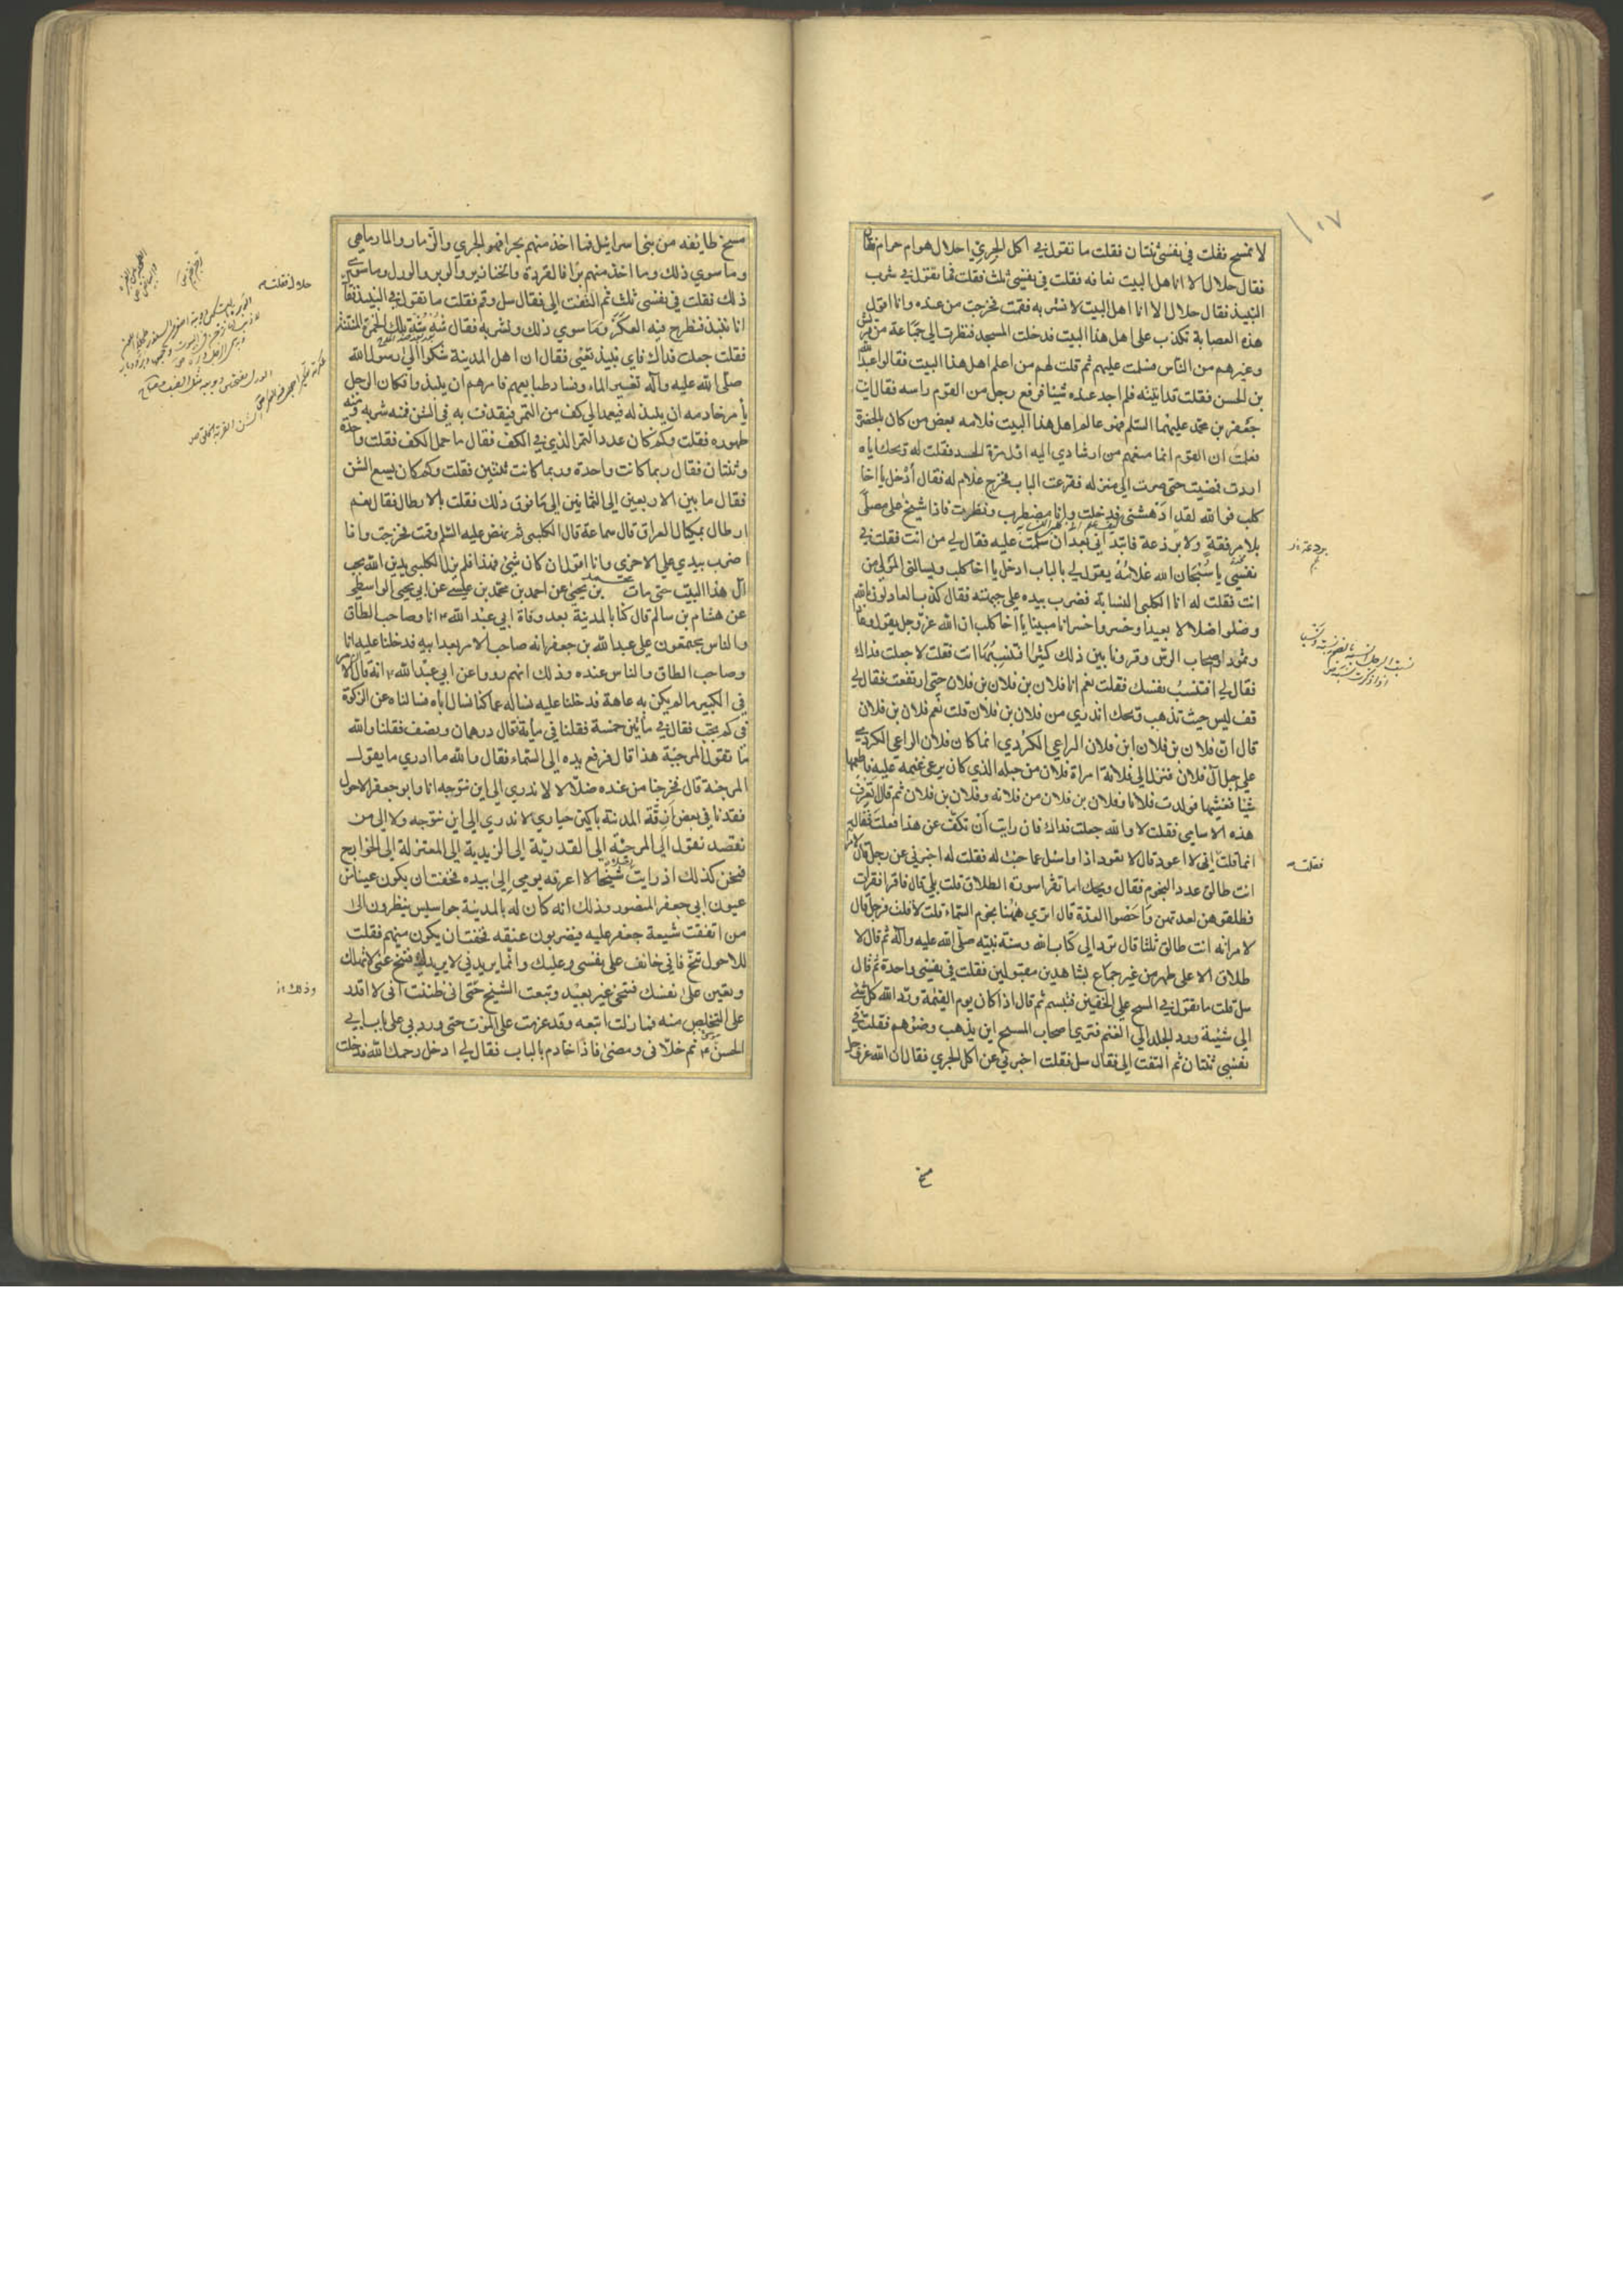 ١٠٧
لا نمسح فقلت في نفسي ثنتان فقلت ما تقول في اكل الجري احلال هو ام حرام فقال
فقال حلال الا انا اهل البيت نعافه فقلت في نفسي ثلث فقلت فما تقول في شرب
النبيذ فقال حلال الا انا اهل البيت لا نشربه فقمت فخرجت من عنده وانا اقول
هذه العصابة تكذب على اهل هذا البيت فدخلت المسجد فنظرت الى جماعة من قريش
وغيرهم من الناس فسلمت عليهم ثم قلت لهم من اعلم اهل هذا البيت فقالوا عبد الله
بن الحسن فقلت قد اتيته فلم اجد عنده شيئا فرفع رجل من القوم راسه فقال ائت
جعفر بن محمد عليهما السلم فهو عالم اهل هذا البيت فلامه بعض من كان بالحضرة
فقلت ان القوم انما منعهم من ارشادي اليه اول مرة الحسد فقلت له ويحك اياه
اردت فمضيت حتى صرت الى منزله فقرعت الباب فخرج غلام له فقال ادخل يا اخا
كلب فوالله لقد ادهشني فدخلت وانا مضطرب ونظرت فاذا شيخ على مصلى
بلا مرفقة ولا برذعة فابتداني بعد ان سلمت عليه فقال لي من انت فقلت في
نفسي يا سبحان الله غلامه يقول لي بالباب ادخل يا اخا كلب ويسالني المولى من
انت فقلت له انا الكلبي النسابة فضرب بيده على جبهته فقال كذب العادلون بالله
وضلوا ضلالا بعيدا وخسروا خسرانا مبينا يا اخا كلب ان الله عز وجل يقول وعادا
وثمود اصحاب الرس وقرونا بين ذلك كثيرا افتنسبها انت فقلت لا جعلت فداك
فقال لي افتنسب نفسك فقلت نعم انا فلان بن فلان بن فلان حتى ارتفعت فقال لي
قف ليس حيث تذهب ويحك اتدري من فلان بن فلان قلت نعم فلان بن فلان
قال ان فلان بن فلان ابن فلان الراعي الكردي انما كان فلان الراعي الكردي
على جبل آل فلان فنزل الى فلانة امراة فلان من جبله الذي كان يرعى غنمه عليه فاطعمها
شيئا فغشيها فولدت فلانا وفلان بن فلان من فلانة وفلان بن فلان ثم قال اتعرف
هذه الاسامي فقلت لا والله جعلت فداك فان رايت ان تكف عن هذا فعلت فقال
انما قلت فقلت اني لا اعود قال لا نعود اذا واسئل عما جئت له فقلت له اخبرني عن رجل قال لامراته
انت طالق عدد النجوم فقال ويحك اما تقرا سورة الطلاق قلت بلى قال فاقرا فقرات
فطلقوهن لعدتهن واحصوا العدة قال اترى ههنا نجوم السماء قلت لا قلت فرجل قال
لامراته انت طالق ثلثا قال ترد الى كتاب الله وسنة نبيه صلى الله عليه وآله ثم قال لا
طلاق الا على طهر من غير جماع بشاهدين مقبولين فقلت في نفسي واحدة ثم قال
سل قلت ما تقول في المسح على الخفين فتبسم ثم قال اذا كان يوم القيمة ورد الله كل شئ
الى شيئه ورد الجلد الى الغنم فترى اصحاب المسح اين يذهب وضوهم فقلت في
نفسي ثنتان ثم التفت الي فقال سل فقلت اخبرني عن اكل الجري فقال ان الله عز وجل
مسخ
برذعة
فقلت
مسخ طايفة من بني اسرائيل فما اخذ منهم بحرا فهو الجري والزمار والمارماهي
وما سوى ذلك وما اخذ منهم برا فالقردة والخنازير والوبر والورل وما سوى
ذلك فقلت في نفسي ثلث ثم التفت الي فقال سل وقم فقلت ما تقول في النبيذ فقال
انا ننبذ فنطرح فيه العكر وما سوى ذلك ونشربه فقال شه شه تلك الخمرة المنتنة
فقلت جعلت فداك فاي نبيذ تعني فقال ان اهل المدينة شكوا الى رسول الله
صلى الله عليه وآله تغيير الماء وفساد طبايعهم فامرهم ان ينبذوا فكان الرجل
يامر خادمه ان ينبذ له فيعمد الى كف من التمر فيقذف به في الشن فمنه شربه ومنه
طهوره فقلت وكم كان عدد التمر الذي في الكف فقال ما حمل الكف فقلت واحدة
وثنتان فقال ربما كانت واحدة وربما كانت ثنتين فقلت وكم كان يسع الشن
فقال ما بين الاربعين الى الثمانين الى ما فوق ذلك فقلت بالارطال فقال نعم
ارطال بمكيال العراق قال سماعة قال الكلبي ثم نهض عليه السلم وقمت فخرجت وانا
اضرب بيدي على الاخرى وانا اقول ان كان شئ فهذا فلم يزل الكلبي يدين الله بحب
آل هذا البيت حتى مات محمد بن يحيى عن احمد بن محمد بن عيسى عن ابي يحيى الواسطي
عن هشام بن سالم قال كنا بالمدينة بعد وفاة ابي عبد الله انا وصاحب الطاق
والناس يجتمعون على عبد الله بن جعفر انه صاحب الامر بعد ابيه فدخلنا عليه انا
وصاحب الطاق والناس عنده وذلك انهم رووا عن ابي عبد الله انه قال الامر
في الكبير ما لم يكن به عاهة فدخلنا عليه نساله عما كنا نسال اباه فسالناه عن الزكوة
في كم تجب فقال في مأتين خمسة فقلنا في مأية فقال درهمان ونصف فقلنا والله
ما تقول المرجئة هذا قال فرفع يده الى السماء فقال والله ما ادري ما يقول
المرجئة قال فخرجنا من عنده ضلالا لا ندري الى اين نتوجه انا وابو جعفر الاحول
فقعدنا في بعض ازقة المدينة باكين حيارى لا ندري الى اين نتوجه ولا الى من
نقصد نقول الى المرجئة الى القدرية الى الزيدية الى المعتزلة الى الخوارج
فنحن كذلك اذ رايت شيخا لا اعرفه يومي الي بيده فخفت ان يكون عينا من
عيون ابي جعفر المنصور وذلك انه كان له بالمدينة جواسيس ينظرون الى
من اتفقت شيعة جعفر عليه فيضربون عنقه فخفت ان يكون منهم فقلت
للاحول تنح فاني خائف على نفسي وعليك وانما يريدني لا يريدك فتنح عني لا تهلك
وتعين على نفسك فتنحى غير بعيد وتبعت الشيخ حتى اني ظننت اني لا اقدر
على التخلص منه فما زلت اتبعه وقد عزمت على الموت حتى ورد بي على باب ابي
الحسن ثم خلاني ومضى فاذا خادم بالباب فقال لي ادخل رحمك الله فدخلت
حلال فقلت
وذلك